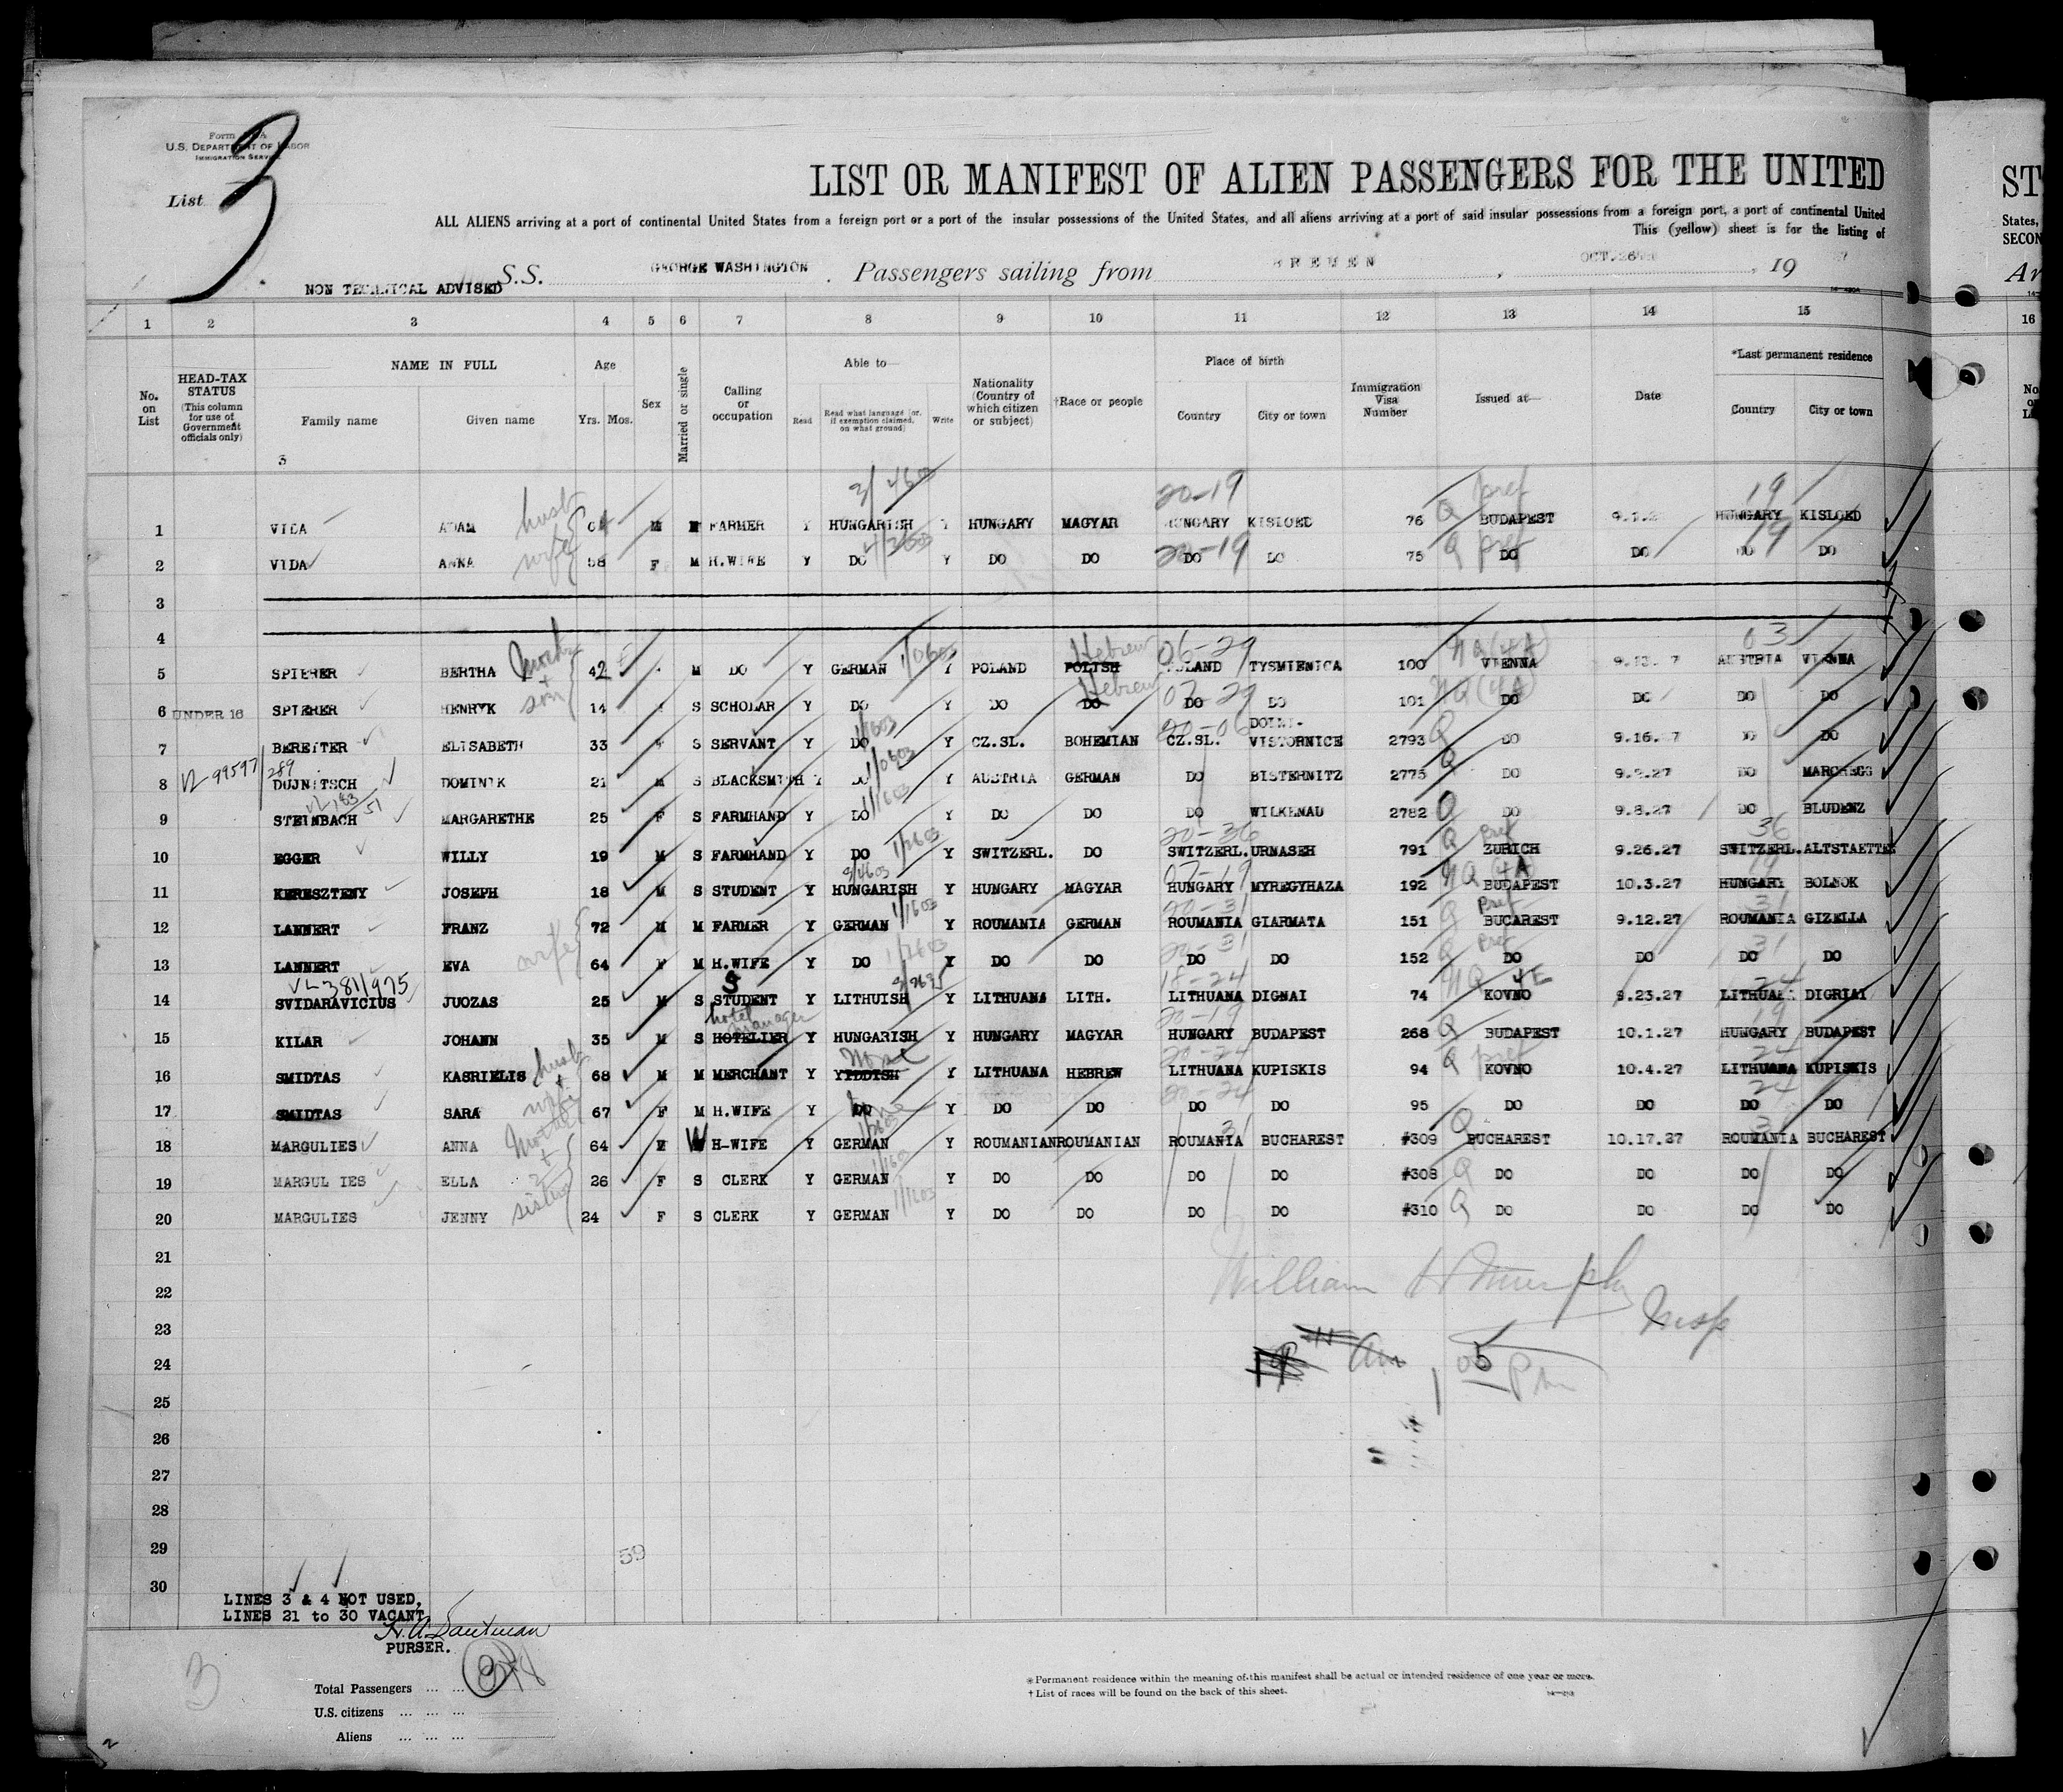 Form
U.S. DEPARTMENT OF LABOR
IMMIGRATION SERVICE
List 3
LIST OR MANIFEST OF ALIEN PASSENGERS FOR THE UNITED
ST
ALL ALIENS arriving at a port of continental United States from a foreign port or a port of the insular possessions of the United States, and all aliens arriving at a port of said insular possessions from a foreign port, a port of continental United
States,
This (yellow) sheet is for the listing of
SECON
NON TECHNICAL ADVISED S.S. GEORGE WASHINGTON . Passengers sailing from BREMEN , OCT.26 , 19 27
Ar
1 2 3 4 5 6 7 8 9 10 11 12 13 14 15 16
No. on List
HEAD-TAX STATUS (This column for use of Government officials only)
NAME IN FULL Family name Given name
Age Yrs. Mos.
Sex
Married or single
Calling or occupation
Able to— Read Read what language [or, if exemption claimed, on what ground] Write
Nationality (Country of which citizen or subject)
†Race or people
Place of birth Country City or town
Immigration Visa Number
Issued at—
Date
*Last permanent residence Country City or town
3
3/4603 20-19 pref 19
1 VIDA ADAM husb 64 M M FARMER Y HUNGARISH Y HUNGARY MAGYAR HUNGARY KISLOED 76 Q BUDAPEST HUNGARY KISLOED
2 VIDA ANNA wife 58 F M H.WIFE Y DO Y DO DO 20-19 DO DO 75 Q pref DO DO DO 19 DO
3
4
5 SPIERER BERTHA Mother + 42 M DO Y GERMAN 1/0603 Y POLAND POLISH Hebrew 06-29 POLAND TYSMIENICA 100 NQ(4A) VIENNA 9.13.27 03 AUSTRIA VIENNA
6 UNDER 16 SPIERER HENRYK son 14 S SCHOLAR Y DO Y DO DO Hebrew 07-29 DO DO 101 NQ(4A) DO DO DO DO
7 BEREITER ELISABETH 33 S SERVANT Y DO 1/1603 Y CZ.SL. BOHEMIAN 20-06 CZ.SL. DOLNI-VISTORNICE 2793 Q DO 9.16.27 DO DO
8 VL 99597/289 DUJNITSCH DOMINIK 21 M S BLACKSMITH Y DO 1/0603 Y AUSTRIA GERMAN DO BISTERNITZ 2775 Q DO 9.2.27 DO MARCHEGG
9 STEINBACH MARGARETHE 25 F S FARMHAND Y DO 1/1603 Y DO DO DO WILKENAU 2782 Q DO 9.8.27 DO BLUDENZ
10 EGGER WILLY 19 M S FARMHAND Y DO 1/2603 Y SWITZERL. DO 20-36 SWITZERL. URNASEH 791 Q Pref ZURICH 9.26.27 36 SWITZERL. ALTSTAETTEN
11 KERESZTENY JOSEPH 18 M S STUDENT Y HUNGARISH 3/4603 Y HUNGARY MAGYAR 07-19 HUNGARY MYREGYHAZA 192 NQ (4A) BUDAPEST 10.3.27 19 HUNGARY BOLNOK
12 LANNERT FRANZ 72 M M FARMER Y GERMAN 1/1603 Y ROUMANIA GERMAN 20-31 ROUMANIA GIARMATA 151 Q Pref BUCAREST 9.12.27 31 ROUMANIA GIZELLA
13 LANNERT EVA wife 64 F M H.WIFE Y DO 1/2603 Y DO DO 20-31 DO DO 152 Q Pref DO DO 31 DO DO
14 VL-381/975 SVIDARAVICIUS JUOZAS 25 M S STUDENT Y LITHUISH Y LITHUANA LITH. 18-24 LITHUANA DIGNAI 74 NQ 4E KOVNO 9.23.27 24 LITHUANA DIGRIAI
15 KILAR JOHANN 35 M S hotel manager HOTELIER Y HUNGARISH Y HUNGARY MAGYAR 20-19 HUNGARY BUDAPEST 268 Q BUDAPEST 10.1.27 19 HUNGARY BUDAPEST
16 SMIDTAS KASRIELIS husb + 68 M M MERCHANT Y YIDDISH None Y LITHUANA HEBREW 20-24 LITHUANA KUPISKIS 94 Q pref KOVNO 10.4.27 24 LITHUANA KUPISKIS
17 SMIDTAS SARA wife 67 F M H.WIFE Y DO None Y DO DO 20-24 DO DO 95 DO DO 24 DO DO
18 MARGULIES ANNA Mother + 64 F W H-WIFE Y GERMAN 1/2603 Y ROUMANIAN ROUMANIAN 31 ROUMANIA BUCHAREST #309 Q BUCHAREST 10.17.27 31 ROUMANIA BUCHAREST
19 MARGULIES ELLA 2 26 F S CLERK Y GERMAN 1/1603 Y DO DO DO DO #308 Q DO DO DO DO
20 MARGULIES JENNY sisters 24 F S CLERK Y GERMAN 1/1603 Y DO DO DO DO #310 Q DO DO DO DO
21
22 William H Murphy
23 Insp
24
25
26
27
28
29
59
30
LINES 3 & 4 NOT USED,
LINES 21 to 30 VACANT
PURSER.
3
Total Passengers ... ...
U.S. citizens ... ... ...
Aliens ... ... ...
*Permanent residence within the meaning of this manifest shall be actual or intended residence of one year or more.
†List of races will be found on the back of this sheet.